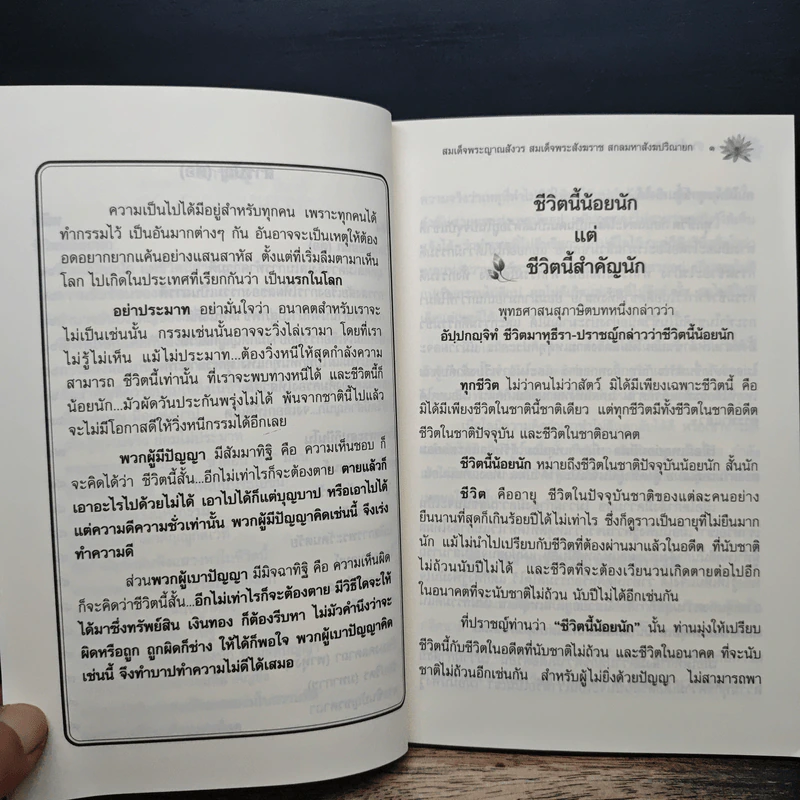 ความเป็นไปได้มีอยู่สำหรับทุกคน เพราะทุกคนได้
ทำกรรมไว้ เป็นอันมากต่างๆ กัน อันอาจจะเป็นเหตุให้ต้อง
อดอยากยากแค้นอย่างแสนสาหัส ตั้งแต่ที่เริ่มลืมตามาเห็น
โลก ไปเกิดในประเทศที่เรียกกันว่า เป็นนรกในโลก
อย่าประมาท อย่ามั่นใจว่า อนาคตสำหรับเราจะ
ไม่เป็นเช่นนั้น กรรมเช่นนั้นอาจจะวิ่งไล่เรามา โดยที่เรา
ไม่รู้ไม่เห็น แม้ไม่ประมาท...ต้องวิ่งหนีให้สุดกำลังความ
สามารถ ชีวิตนี้เท่านั้น ที่เราจะพบทางหนีได้ และชีวิตนี้ก็
น้อยนัก...มัวผัดวันประกันพรุ่งไม่ได้ พ้นจากชาตินี้ไปแล้ว
จะไม่มีโอกาสดีให้วิ่งหนีกรรมได้อีกเลย
พวกผู้มีปัญญา มีสัมมาทิฐิ คือ ความเห็นชอบ ก็
จะคิดได้ว่า ชีวิตนี้สั้น...อีกไม่เท่าไรก็จะต้องตาย ตายแล้วก็
เอาอะไรไปด้วยไม่ได้ เอาไปได้ก็แต่บุญบาป หรือเอาไปได้
แต่ความดีความชั่วเท่านั้น พวกผู้มีปัญญาคิดเช่นนี้ จึงเร่ง
ทำความดี
ส่วนพวกผู้เบาปัญญา มีมิจฉาทิฐิ คือ ความเห็นผิด
ก็จะคิดว่าชีวิตนี้สั้น...อีกไม่เท่าไรก็จะต้องตาย มีวิธีใดจะให้
ได้มาซึ่งทรัพย์สิน เงินทอง ก็ต้องรีบหา ไม่มัวคำนึงว่าจะ
ผิดหรือถูก ถูกผิดก็ช่าง ให้ได้ก็พอใจ พวกผู้เบาปัญญาคิด
เช่นนี้ จึงทำบาปทำความไม่ดีได้เสมอ
สมเด็จพระญาณสังวร สมเด็จพระสังฆราช สกลมหาสังฆปริณายก ๑
ชีวิตนี้น้อยนัก
แต่
ชีวิตนี้สำคัญนัก
พุทธศาสนสุภาษิตบทหนึ่งกล่าวว่า
อัปฺปกญฺจิทํ ชีวิตมาหุธีรา-ปราชญ์กล่าวว่าชีวิตนี้น้อยนัก
ทุกชีวิต ไม่ว่าคนไม่ว่าสัตว์ มิได้มีเพียงเฉพาะชีวิตนี้ คือ
มิได้มีเพียงชีวิตในชาตินี้ชาติเดียว แต่ทุกชีวิตมีทั้งชีวิตในชาติอดีต
ชีวิตในชาติปัจจุบัน และชีวิตในชาติอนาคต
ชีวิตนี้น้อยนัก หมายถึงชีวิตในชาติปัจจุบันน้อยนัก สั้นนัก
ชีวิต คืออายุ ชีวิตในปัจจุบันชาติของแต่ละคนอย่าง
ยืนนานที่สุดก็เกินร้อยปีได้ไม่เท่าไร ซึ่งก็ดูราวเป็นอายุที่ไม่ยืนมาก
นัก แม้ไม่นำไปเปรียบกับชีวิตที่ต้องผ่านมาแล้วในอดีต ที่นับชาติ
ไม่ถ้วนนับปีไม่ได้ และชีวิตที่จะต้องเวียนวนเกิดตายต่อไปอีก
ในอนาคตที่จะนับชาติไม่ถ้วน นับปีไม่ได้อีกเช่นกัน
ที่ปราชญ์ท่านว่า “ชีวิตนี้น้อยนัก” นั้น ท่านมุ่งให้เปรียบ
ชีวิตนี้กับชีวิตในอดีตที่นับชาติไม่ถ้วน และชีวิตในอนาคต ที่จะนับ
ชาติไม่ถ้วนอีกเช่นกัน สำหรับผู้ไม่ยิ่งด้วยปัญญา ไม่สามารถพา